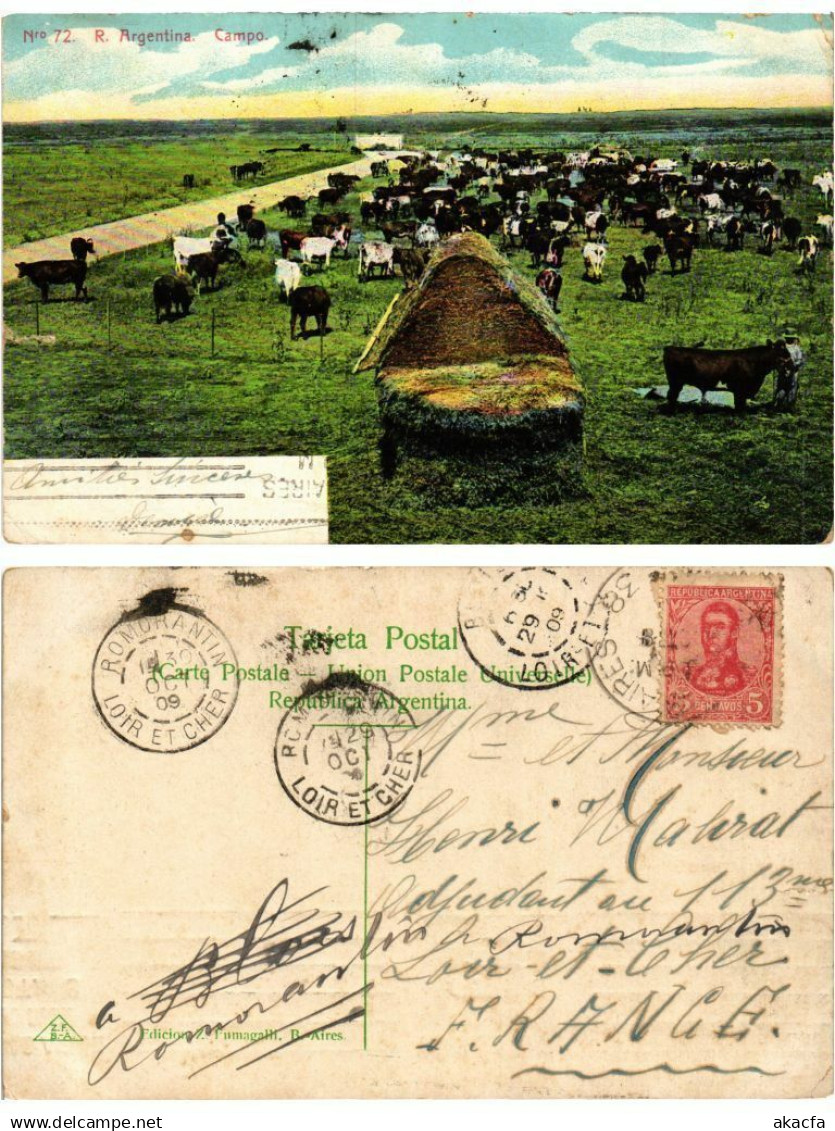 Nro 72. R. Argentina. Campo.
Amitiés Sincères
AIRES
Tarjeta Postal
(Carte Postale — Union Postale Universelle)
República Argentina.
ROMORANTIN
30
OCT
09
LOIR ET CHER
29
OCT
LOIR ET CHER
29
09
LOIR-ET-
AIRES
REPUBLICA ARGENTINA
5 CENTAVOS 5
Mme et Monsieur
Henri Mahrat
Adjudant au 113me
à Romorantin
Loir-et-Cher
FRANCE.
à Blois
Romorantin
Z.F.
B.-A.
Edicion Z. Fumagalli, B.-Aires.
akacfa